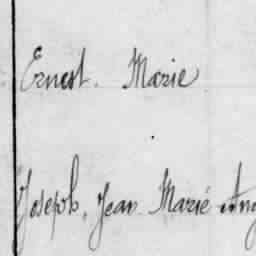 Ernest. Marie
Joseph, Jean Marié